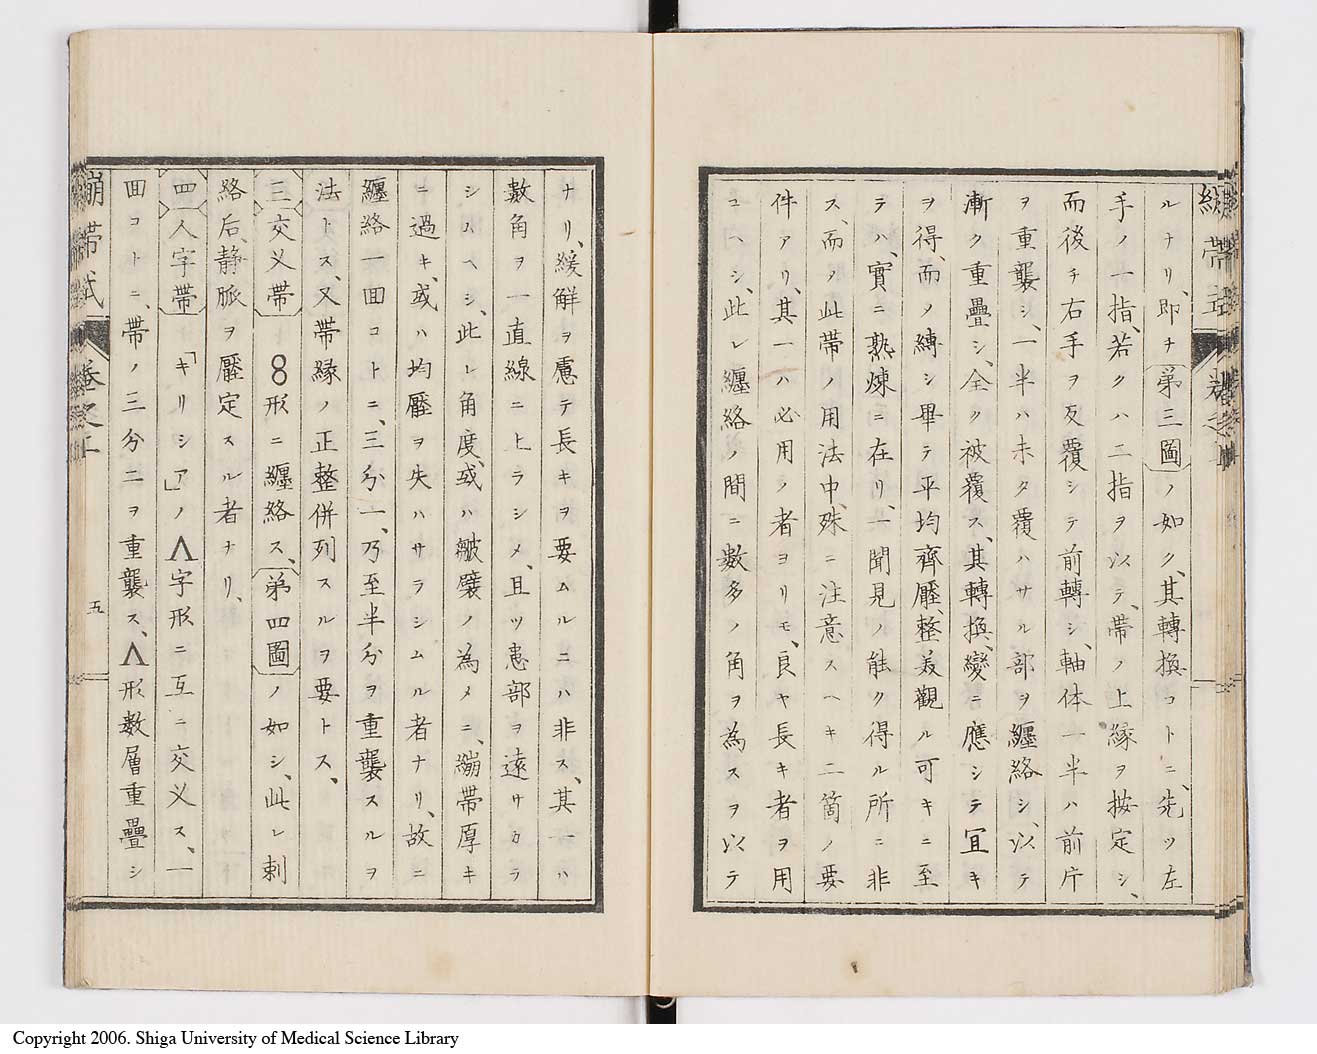 ルナリ、即チ第三圖ノ如ク、其轉換コトニ、先ツ左
手ノ一指、若クハ二指ヲ以テ、帯ノ上縁ヲ按定シ、
而後チ右手ヲ反覆シテ前轉シ、軸体一半ハ前片
ヲ重襲シ、一半ハ未タ覆ハサル部ヲ纒絡シ、以テ
漸ク重疊シ、全ク被覆ス、其轉換、變ニ應シテ冝キ
ヲ得、而ノ縛シ畢テ平均齊壓、整美觀ル可キニ至
ラハ、實ニ熟煉ニ在リ、一聞見ノ能ク得ル所ニ非
ス、而ノ此帯ノ用法中、殊ニ注意スヘキ二箇ノ要
件アリ、其一ハ必用ノ者ヨリモ、良ヤ長キ者ヲ用
ユヘシ、此レ纒絡ノ間ニ數多ノ角ヲ為スヲ以テ
ナリ、緩觧ヲ慮テ長キヲ要ムルニハ非ス、其一ハ
數角ヲ一直線ニ上ラシメ、且ツ患部ヲ遠サカラ
シムヘシ、此レ角度、或ハ皺襞ノ為メニ、繃帯厚キ
ニ過キ、或ハ均壓ヲ失ハサラシムル者ナリ、故ニ
纒絡一囬コトニ、三分一、乃至半分ヲ重襲スルヲ
法トス、又帯縁ノ正整併列スルヲ要トス、
三交乂帯 8形ニ纒絡ス、第四圖ノ如シ、此レ刺
絡后、静脈ヲ壓定スル者ナリ、
四人字帯「キリシア」ノΛ字形ニ互ニ交乂ス、一
囬コトニ、帯ノ三分二ヲ重襲ス、Λ形數層重疊シ
繃帯式 巻之上
五
Copyright 2006. Shiga University of Medical Science Library